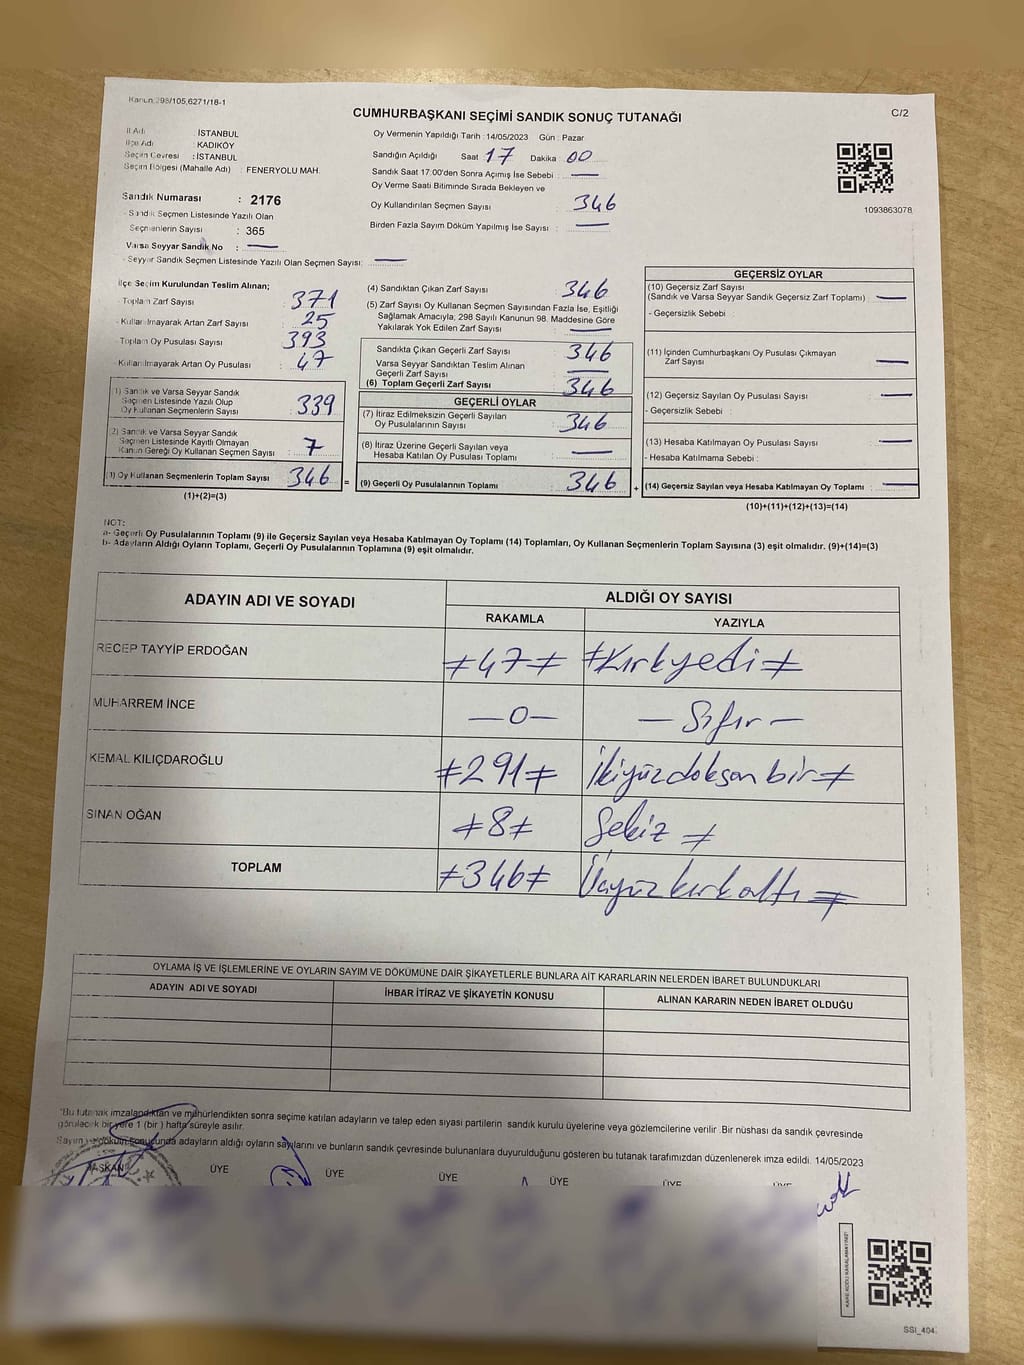 Kanun:298/105,6271/18-1
CUMHURBAŞKANI SEÇİMİ SANDIK SONUÇ TUTANAĞI
C/2
İl Adı : İSTANBUL
İlçe Adı : KADIKÖY
Seçim Çevresi : İSTANBUL
Seçim Bölgesi (Mahalle Adı) : FENERYOLU MAH.
Sandık Numarası : 2176
Sandık Seçmen Listesinde Yazılı Olan
Seçmenlerin Sayısı : 365
Varsa Seyyar Sandık No : —
Seyyar Sandık Seçmen Listesinde Yazılı Olan Seçmen Sayısı: —
Oy Vermenin Yapıldığı Tarih : 14/05/2023 Gün : Pazar
Sandığın Açıldığı Saat 17 Dakika 00
Sandık Saat 17:00'den Sonra Açımış İse Sebebi : —
Oy Verme Saati Bitiminde Sırada Bekleyen ve
Oy Kullandırılan Seçmen Sayısı : 346
Birden Fazla Sayım Döküm Yapılmış İse Sayısı : —
1093863078
İlçe Seçim Kurulundan Teslim Alınan;
Toplam Zarf Sayısı : 371
Kullanılmayarak Artan Zarf Sayısı : 25
Toplam Oy Pusulası Sayısı : 393
Kullanılmayarak Artan Oy Pusulası : 47
(1) Sandık ve Varsa Seyyar Sandık
Seçmen Listesinde Yazılı Olup
Oy Kullanan Seçmenlerin Sayısı : 339
(2) Sandık ve Varsa Seyyar Sandık
Seçmen Listesinde Kayıtlı Olmayan
Kanun Gereği Oy Kullanan Seçmen Sayısı : 7
(3) Oy Kullanan Seçmenlerin Toplam Sayısı : 346 =
(1)+(2)=(3)
(4) Sandıktan Çıkan Zarf Sayısı : 346
(5) Zarf Sayısı Oy Kullanan Seçmen Sayısından Fazla İse, Eşitliği
Sağlamak Amacıyla, 298 Sayılı Kanunun 98. Maddesine Göre
Yakılarak Yok Edilen Zarf Sayısı : —
Sandıkta Çıkan Geçerli Zarf Sayısı : 346
Varsa Seyyar Sandıktan Teslim Alınan
Geçerli Zarf Sayısı : —
(6) Toplam Geçerli Zarf Sayısı : 346
GEÇERLİ OYLAR
(7) İtiraz Edilmeksizin Geçerli Sayılan
Oy Pusulalarının Sayısı : 346
(8) İtiraz Üzerine Geçerli Sayılan veya
Hesaba Katılan Oy Pusulası Toplamı : —
(9) Geçerli Oy Pusulalarının Toplamı : 346 +
GEÇERSİZ OYLAR
(10) Geçersiz Zarf Sayısı
(Sandık ve Varsa Seyyar Sandık Geçersiz Zarf Toplamı) : —
- Geçersizlik Sebebi :
(11) İçinden Cumhurbaşkanı Oy Pusulası Çıkmayan
Zarf Sayısı : —
(12) Geçersiz Sayılan Oy Pusulası Sayısı : —
- Geçersizlik Sebebi :
(13) Hesaba Katılmayan Oy Pusulası Sayısı : —
- Hesaba Katılmama Sebebi :
(14) Geçersiz Sayılan veya Hesaba Katılmayan Oy Toplamı : —
(10)+(11)+(12)+(13)=(14)
NOT:
a- Geçerli Oy Pusulalarının Toplamı (9) ile Geçersiz Sayılan veya Hesaba Katılmayan Oy Toplamı (14) Toplamları, Oy Kullanan Seçmenlerin Toplam Sayısına (3) eşit olmalıdır. (9)+(14)=(3)
b- Adayların Aldığı Oyların Toplamı, Geçerli Oy Pusulalarının Toplamına (9) eşit olmalıdır.
ADAYIN ADI VE SOYADI
ALDIĞI OY SAYISI
RAKAMLA YAZIYLA
RECEP TAYYİP ERDOĞAN ≠47≠ ≠Kırkyedi≠
MUHARREM İNCE —0— —Sıfır—
KEMAL KILIÇDAROĞLU ≠291≠ İkiyüzdoksanbir≠
SİNAN OĞAN ≠8≠ Sekiz≠
TOPLAM ≠346≠ Üçyüzkırkaltı≠
OYLAMA İŞ VE İŞLEMLERİNE VE OYLARIN SAYIM VE DÖKÜMÜNE DAİR ŞİKAYETLERLE BUNLARA AİT KARARLARIN NELERDEN İBARET BULUNDUKLARI
ADAYIN ADI VE SOYADI İHBAR İTİRAZ VE ŞİKAYETİN KONUSU ALINAN KARARIN NEDEN İBARET OLDUĞU
*Bu tutanak imzalandıktan ve mühürlendikten sonra seçime katılan adayların ve talep eden siyasi partilerin sandık kurulu üyelerine veya gözlemcilerine verilir .Bir nüshası da sandık çevresinde
görülecek bir yere 1 (bir ) hafta süreyle asılır.
Sayım ve döküm sonucunda adayların aldığı oyların sayılarını ve bunların sandık çevresinde bulunanlara duyurulduğunu gösteren bu tutanak tarafımızdan düzenlenerek imza edildi. 14/05/2023
BAŞKAN ÜYE ÜYE ÜYE ÜYE ÜYE ÜYE
KARE KODU KARALAMAYINIZ!
SSI_404